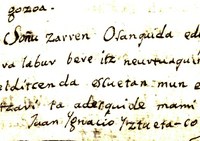 gozoa.
Soñu zarren Osanguida ed
va labur bere itz neurtuaqui
elditcenda escuetan mun e
tzavi ta adesquide mami
Juan Ygnacio Yztueta-co